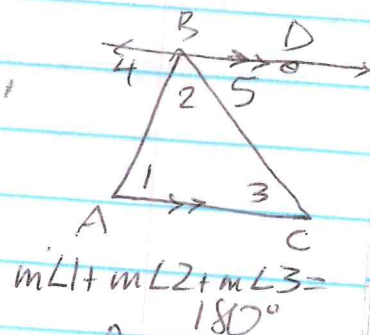 B D
4 2 5
1 3
A C
m∠1+m∠2+m∠3=
180°